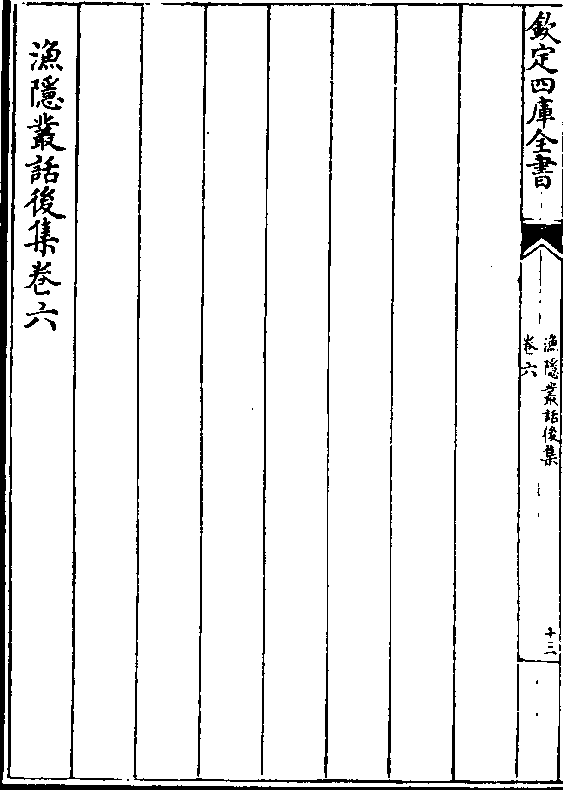 欽定四庫全書
漁隱叢話後集
卷六
十三
漁隱叢話後集卷六